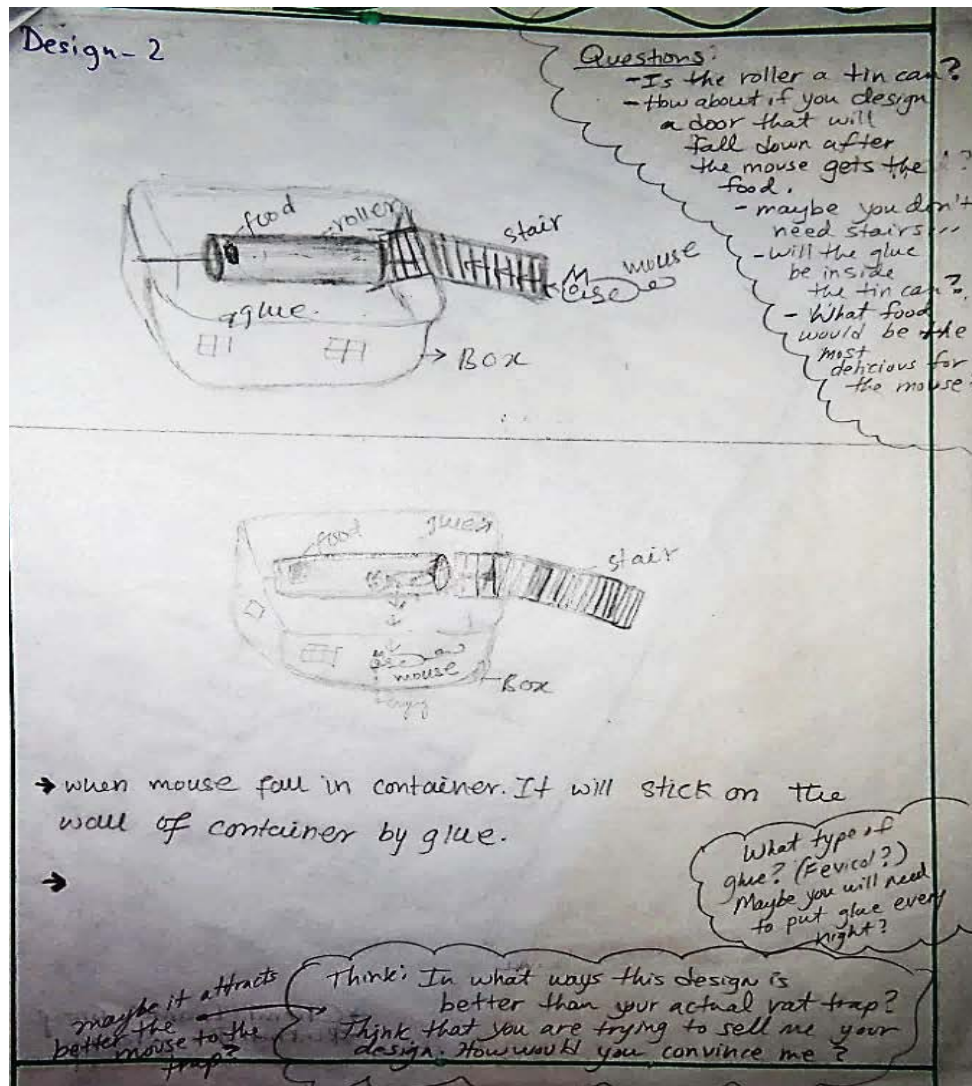 Design-2
Questions:
-Is the roller a tin can?
-How about if you design
a door that will
fall down after
the mouse gets the
food.
?
- maybe you don't
need stairs...
-will the glue
be inside
the tin can?
- What food
would be the
most
delicious for
the mouse?
food
roller
stair
mouse
glue.
BOX
food
glue
stair
mouse
Box
→ when mouse fall in container. It will stick on the
wall of container by glue.
→
What type of
glue? (Fevicol?)
Maybe you will need
to put glue every
night?
maybe it attracts
better the
mouse to the
trap?
Think: In what ways this design is
better than your actual rat trap?
Think that you are trying to sell me your
design. How would you convince me?